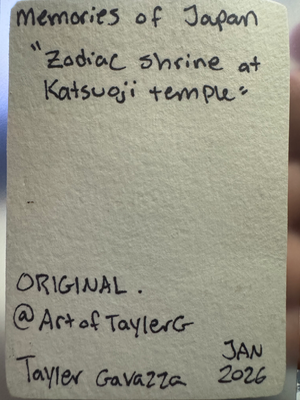 memories of Japan
"Zodiac shrine at
Katsuoji temple"
ORIGINAL.
@ArtofTaylerG
Tayler Gavazza
JAN
2026